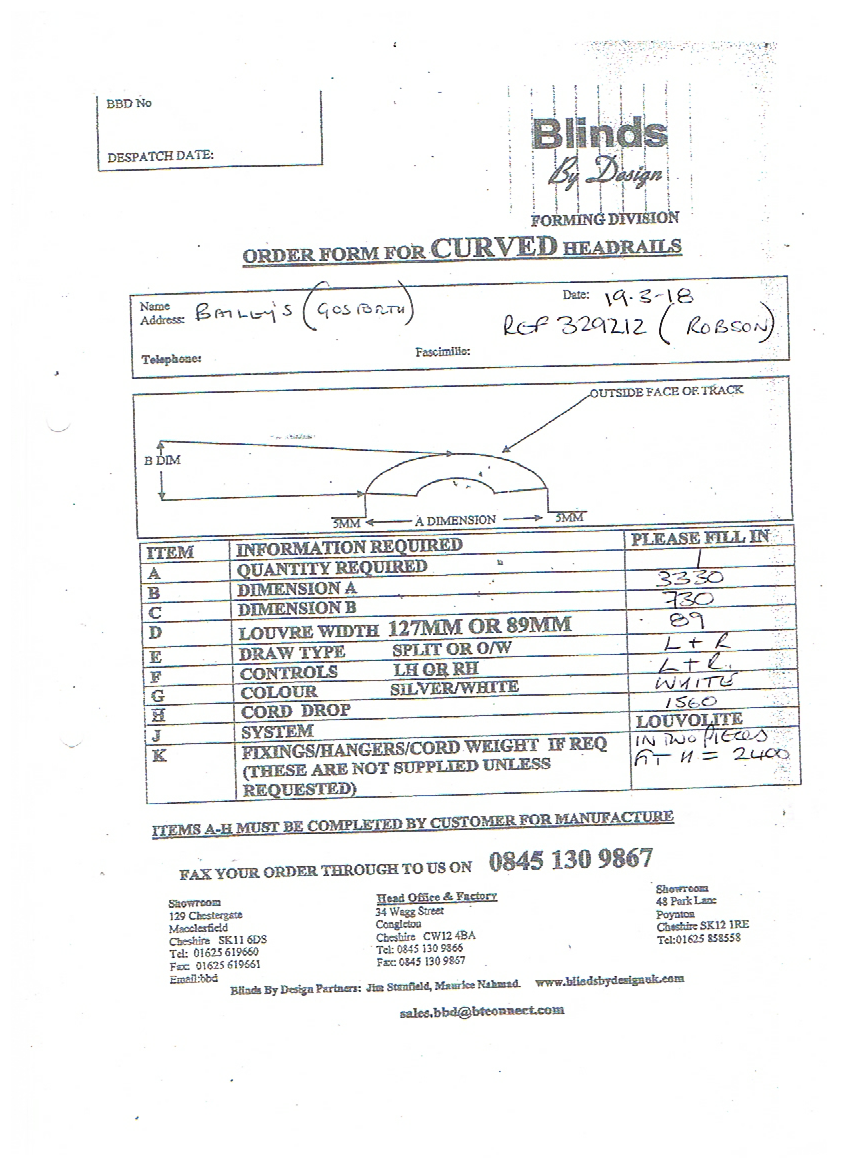 BBD No
DESPATCH DATE:
Blinds
By Design
FORMING DIVISION
ORDER FORM FOR CURVED HEADRAILS
Name
Address: BAILEY'S (GOSFORTH)
Date: 19-3-18
REF 329212 (ROBSON)
Telephone:
Fascimilie:
OUTSIDE FACE OF TRACK
B DIM
5MM A DIMENSION 5MM
ITEM INFORMATION REQUIRED PLEASE FILL IN
A QUANTITY REQUIRED 1
B DIMENSION A 3330
C DIMENSION B 730
D LOUVRE WIDTH 127MM OR 89MM 89
E DRAW TYPE SPLIT OR O/W L + R
F CONTROLS LH OR RH L + R
G COLOUR SILVER/WHITE WHITE
H CORD DROP 1560
J SYSTEM LOUVOLITE
K FIXINGS/HANGERS/CORD WEIGHT IF REQ IN TWO PIECES
(THESE ARE NOT SUPPLIED UNLESS AT H = 2400
REQUESTED)
ITEMS A-H MUST BE COMPLETED BY CUSTOMER FOR MANUFACTURE
FAX YOUR ORDER THROUGH TO US ON 0845 130 9867
Showroom
129 Chestergate
Macclesfield
Cheshire SK11 6DS
Tel: 01625 619660
Fax: 01625 619661
Email:bbd
Head Office & Factory
34 Wagg Street
Congleton
Cheshire CW12 4BA
Tel: 0845 130 9866
Fax: 0845 130 9867
Showroom
48 Park Lane
Poynton
Cheshire SK12 1RE
Tel:01625 858558
Blinds By Design Partners: Jim Stanfield, Maurice Nahmad. www.blindsbydesignuk.com
sales.bbd@btconnect.com